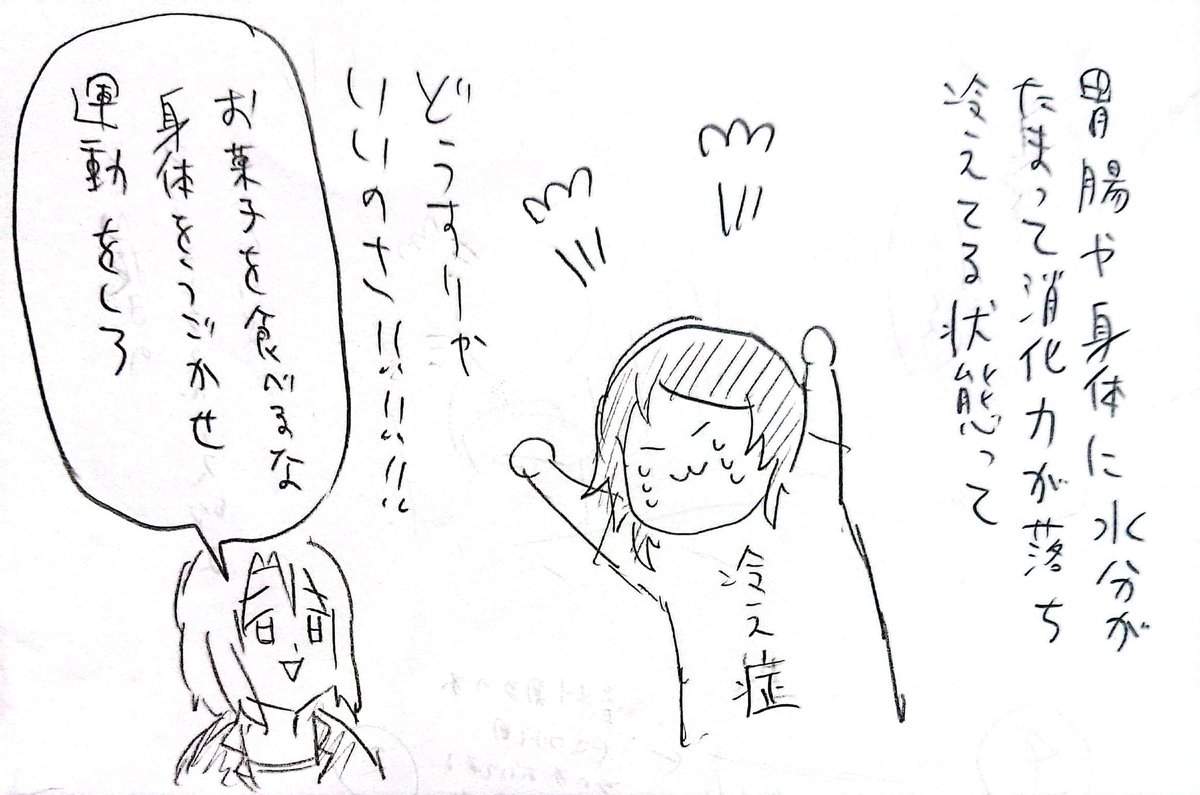 胃腸や身体に水分が
たまって消化力が落ち
冷えてる状態って
どうすりゃ
いいのさ!!!!!!!!
冷え症
お菓子を食べるな
身体をうごかせ
運動をしろ